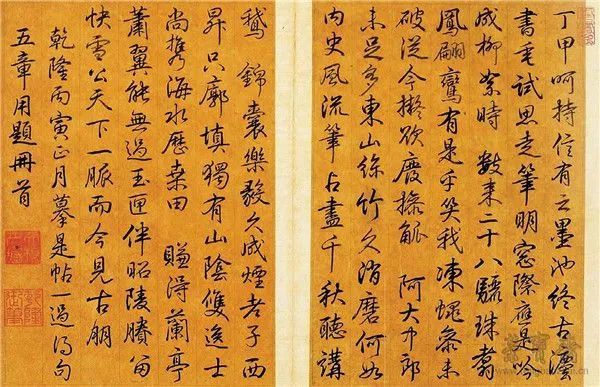 丁甲呵持信有之墨池終古
書試思走筆明窗際應是吟
成柳絮時 數來二十八驪珠翥
鳳翩鸞有是乎笑我凍蠅參未
破從今擬欲廢操觚 阿大中郎
未足多東山絲竹久消磨何如
內史風流筆占盡千秋聽講
鵝 錦囊樂毅久成煙老子西
昇只廓填獨有山陰雙逸士
尚攜海水歷桑田 賺得蘭亭
蕭翼能無過玉匣伴昭陵賸留
快雪公天下一脈而今見古朋
乾隆丙寅正月摹是帖一過得句
五章用題冊首